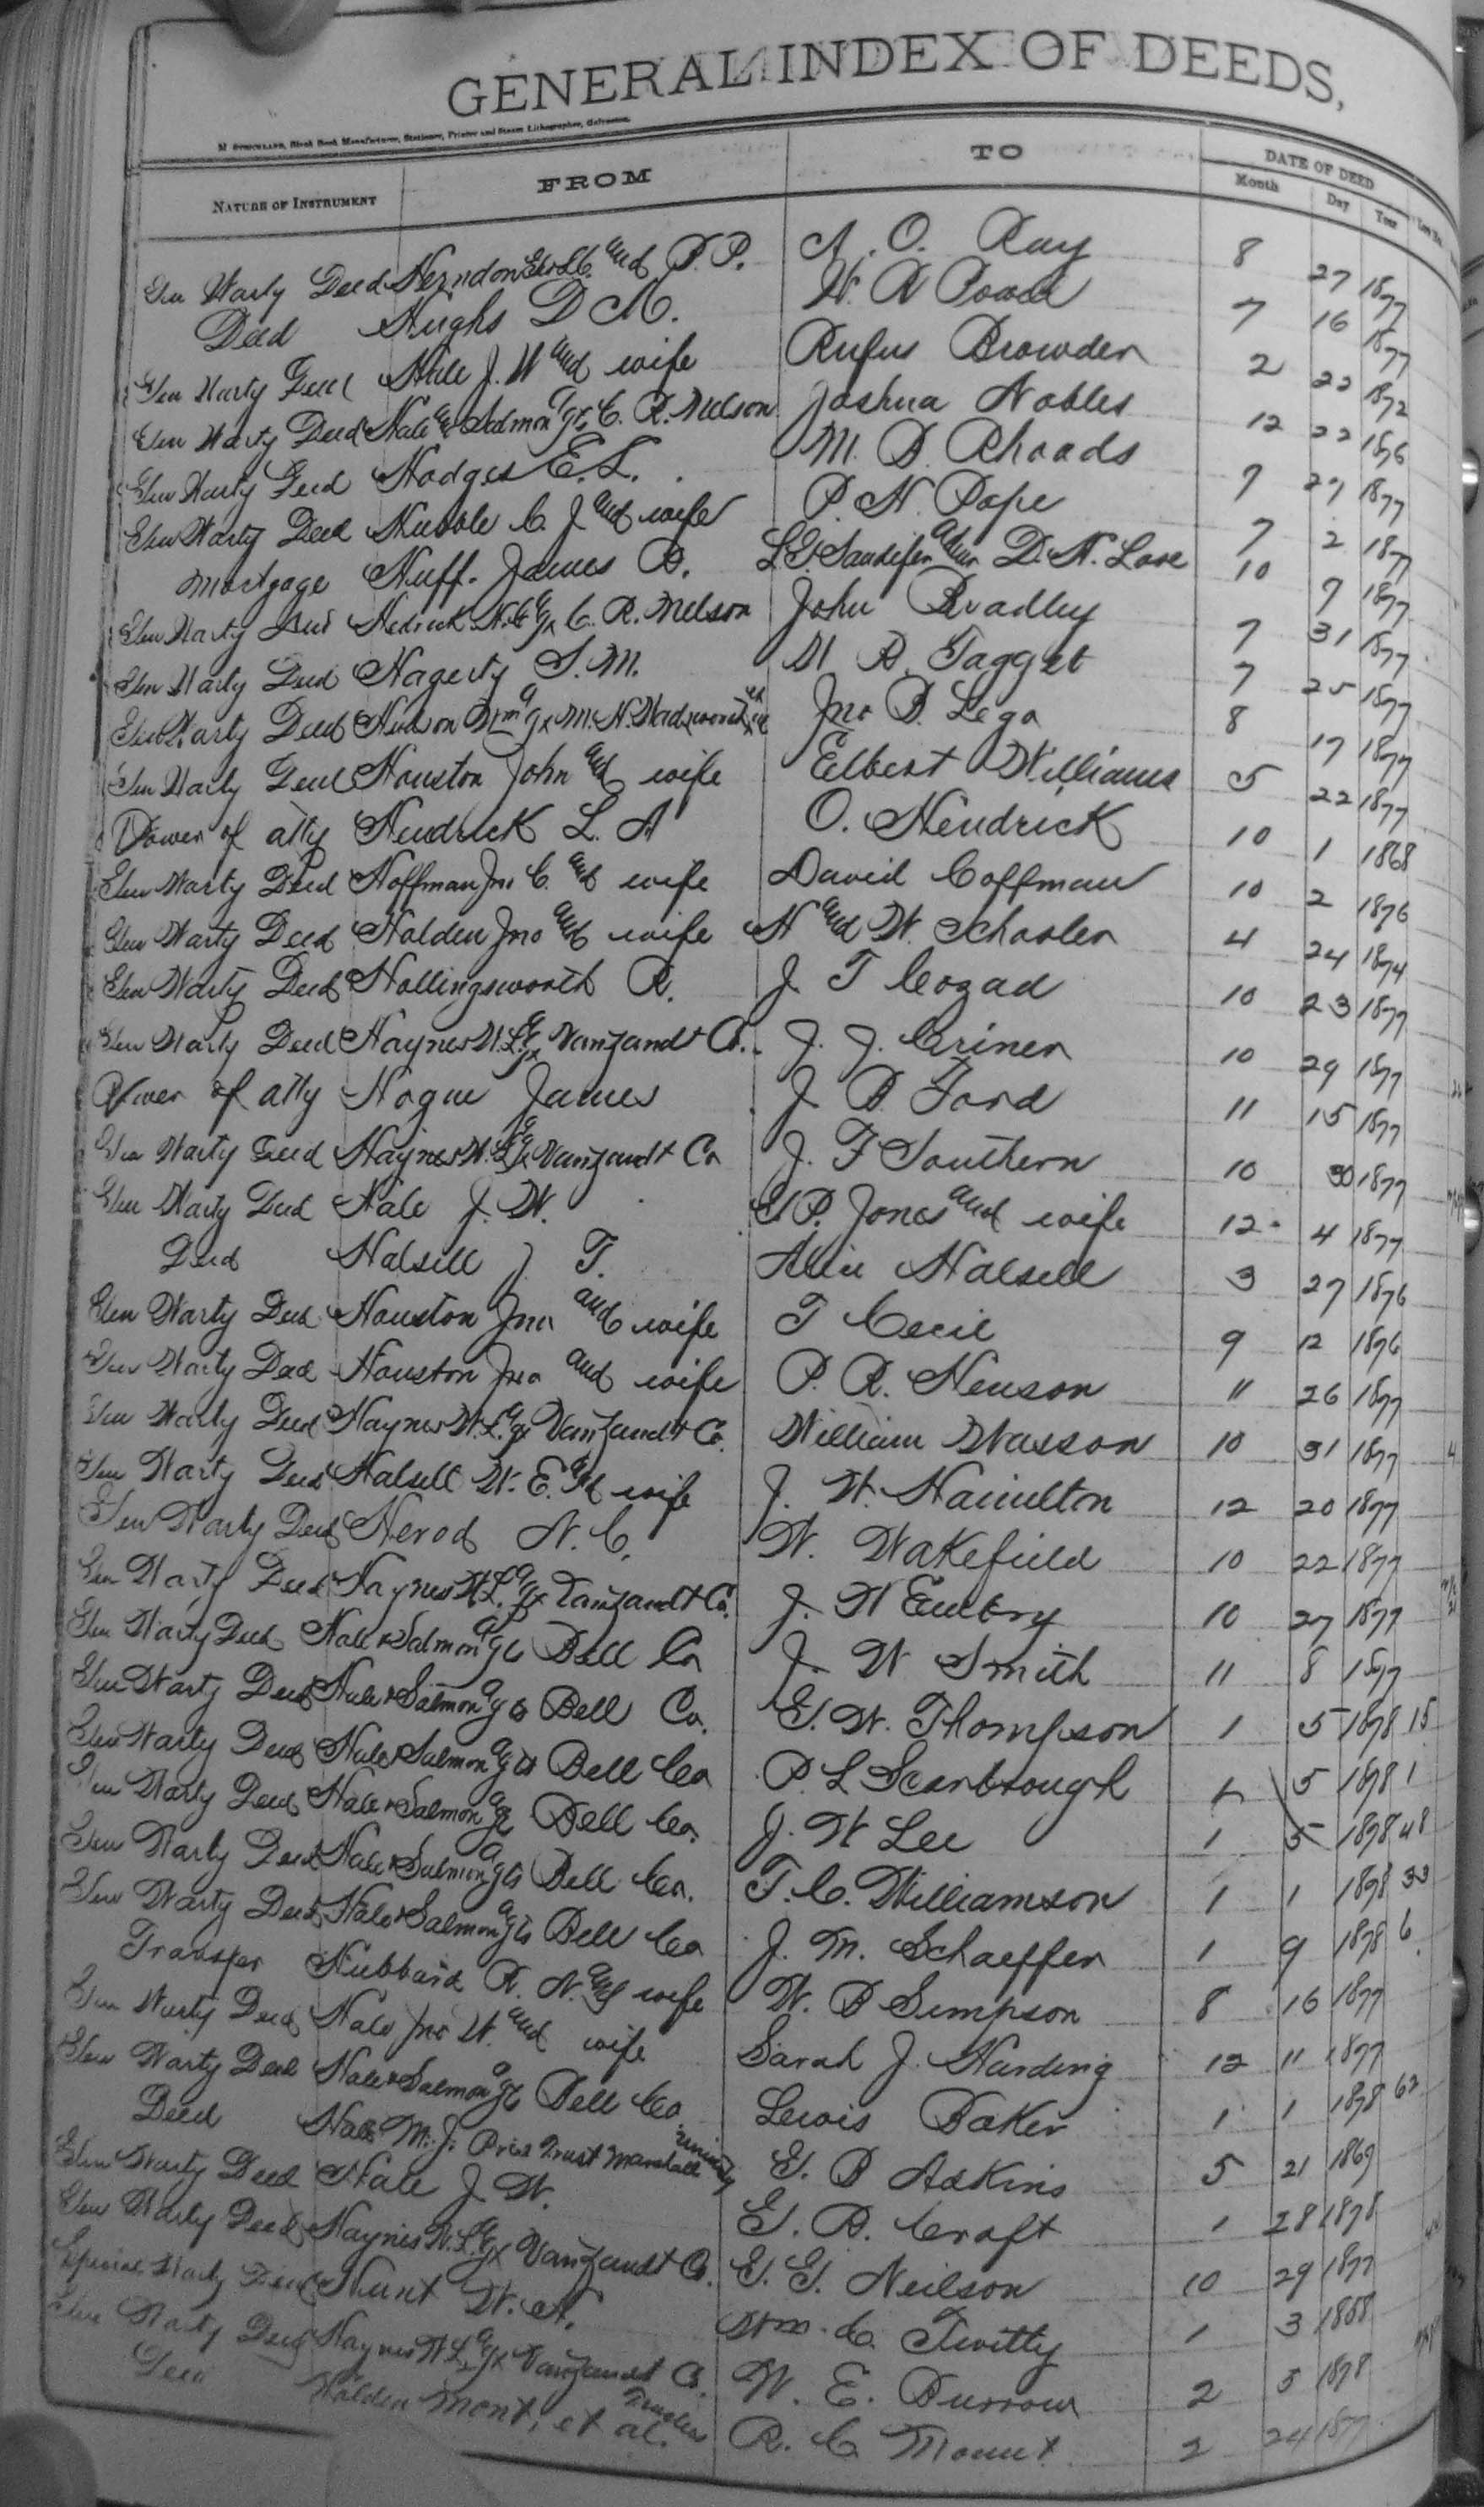 GENERAL INDEX OF DEEDS,
M STRICKLAND, Blank Book Manufacturer, Stationer, Printer and Steam Lithographer, Galveston.
NATURE OF INSTRUMENT FROM TO DATE OF DEED
Month Day Year
Gen Warty Deed Herndon and P. P. A. O. Ray 8 27 1877
Deed Hughs D M. 7 16 1877
Gen Warty Deed Hale J. W and wife Rufus Browder 2 22 1872
Gen Warty Deed Hale & Salmon Agts C. R. Nelson Joshua Nobles 12 22 1876
Gen Warty Deed Hodges E. L. M. B. Rhoads 7 27 1877
Gen Warty Deed Hubble C. J. and wife P. H. Pope 7 2 1877
Mortgage Huff. James B. L. G. Sandifer Admr D. N. Love 10 7 1877
Gen Warty Deed Hedrick N. C. Agt C. R. Nelson John Bradley 7 31 1877
Gen Warty Deed Hagerty S. M. W B. Tagget 7 25 1877
Gen Warty Deed Hudson Wm Agt M. H. Wadsworth Jno B. Lego 8 17 1877
Gen Warty Deed Houston John and wife Elbert Williams 5 22 1877
Power of atty Hendrick L. A O. Hendrick 10 1 1868
Gen Warty Deed Hoffman Jno C. and wife David Coffman 10 2 1876
Gen Warty Deed Holden Jno and wife H and W. Schosler 4 24 1874
Gen Warty Deed Hollingsworth R. J. T Cozad 10 23 1877
Gen Warty Deed Haynes W. L. Agt Vanzandt Co. J. J. Criner 10 29 1877
Power of atty Hogue James J B Ford 11 15 1877
Gen Warty Deed Haynes W. L. Agt Vanzandt Co J. F Southern 10 30 1877
Gen Warty Deed Hale J. W. G. P. Jones and wife 12 4 1877
Deed Halsell J T. Alice Halsell 3 27 1876
Gen Warty Deed Houston Jno and wife T Cecil 9 12 1876
Gen Warty Deed Houston Jno and wife P. R. Henson 11 26 1877
Gen Warty Deed Haynes W. L. Agt Vanzandt Co. William Wasson 10 31 1877
Gen Warty Deed Halsell W. E. and wife J. W. Hamilton 12 20 1877
Gen Warty Deed Herod N. C. W. Wakefield 10 22 1877
Gen Warty Deed Haynes W. L. Agt Vanzandt Co. J. W Embry 10 27 1877
Gen Warty Deed Hale & Salmon Agts Bell Co J. W Smith 11 8 1877
Gen Warty Deed Hale & Salmon Agts Bell Co. G. W. Thompson 1 5 1878 15
Gen Warty Deed Hale & Salmon Agts Bell Co P L Scarbrough 5 1878 1
Gen Warty Deed Hale & Salmon Agts Bell Co. J. W Lee 1 5 1878 48
Gen Warty Deed Hale & Salmon Agts Bell Co. T. C. Williamson 1 1 1878 33
Gen Warty Deed Hale & Salmon Agts Bell Co J. M. Schaeffer 1 9 1878 6
Transfer Hubbard R. N. and wife W. B Simpson 8 16 1877
Gen Warty Deed Hale Jno W. and wife Sarah J. Harding 12 11 1877
Gen Warty Deed Hale & Salmon Agts Bell Co Lewis Baker 1 1 1878 62
Deed M. J. Pres Trust Marshall University G. B Adkins 5 21 1869
Gen Warty Deed Hale J. W. G. B. Croft 1 28 1878
Gen Warty Deed Haynes W. L. Agt Vanzandt Co. G. G. Neilson 10 29 1877
Special Warty Deed Hunt W. H. Wm. C. Twitty 1 3 1868
Gen Warty Deed Haynes W L. Agt Vanzandt Co. W. E. Burrow 2 5 1878
Deed Holden Mont, et al. R. C Mount 2 24